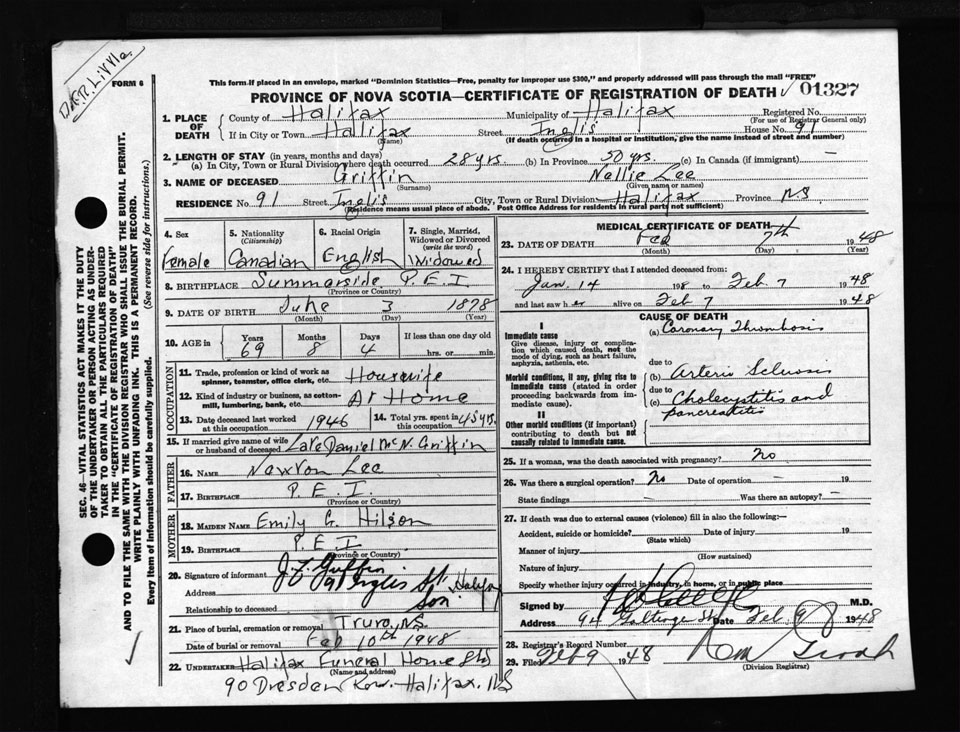 D.F.R. Little
FORM 6
This form if placed in an envelope, marked "Dominion Statistics—Free, penalty for improper use $300," and properly addressed will pass through the mail "FREE"
PROVINCE OF NOVA SCOTIA—CERTIFICATE OF REGISTRATION OF DEATH 01327
1. PLACE OF DEATH
County of Halifax Municipality of Halifax Registered No.
(For use of Registrar General only)
If in City or Town Halifax Street Inglis House No. 91
(Name) (If death occurred in a hospital or institution, give the name instead of street and number)
2. LENGTH OF STAY (in years, months and days)
(a) In City, Town or Rural Division where death occurred 28 yrs. (b) In Province 50 yrs. (c) In Canada (if immigrant) —
3. NAME OF DECEASED Griffin Nellie Lee
(Surname) (Given name or names)
RESIDENCE No. 91 Street Inglis City, Town or Rural Division Halifax Province N.S
(Residence means usual place of abode. Post Office Address for residents in rural parts not sufficient)
4. Sex
Female
5. Nationality
(Citizenship)
Canadian
6. Racial Origin
English
7. Single, Married, Widowed or Divorced
(write the word)
Widowed
8. BIRTHPLACE Summerside P.E.I
(Province or Country)
9. DATE OF BIRTH June 3 1878
(Month) (Day) (Year)
10. AGE in Years Months Days If less than one day old
69 8 4 hrs. or min.
OCCUPATION
11. Trade, profession or kind of work as spinner, teamster, office clerk, etc. Housewife
12. Kind of industry or business, as cotton-mill, lumbering, bank, etc. At Home
13. Date deceased last worked at this occupation 1946
14. Total yrs. spent in this occupation 45 yrs.
15. If married give name of wife or husband of deceased Late Daniel McN. Griffin
FATHER
16. NAME Newton Lee
17. BIRTHPLACE P.E.I.
(Province or Country)
MOTHER
18. MAIDEN NAME Emily G. Hilson
19. BIRTHPLACE P.E.I
(Province or Country)
20. Signature of informant Griffin
Address 91 Inglis St. Halifax
Relationship to deceased Son
21. Place of burial, cremation or removal Truro, N.S.
Date of burial or removal Feb 10th 1948
22. UNDERTAKER Halifax Funeral Home Ltd
(Name and address)
90 Dresden Row. Halifax. N.S
MEDICAL CERTIFICATE OF DEATH
23. DATE OF DEATH Feb 7th 1948
(Month) (Day) (Year)
24. I HEREBY CERTIFY that I attended deceased from:
Jan. 14 1948 to Feb. 7 1948
and last saw her alive on Feb 7 1948
CAUSE OF DEATH
I
Immediate cause
Give disease, injury or complication which caused death, not the mode of dying, such as heart failure, asphyxia, asthenia, etc.
(a) Coronary Thrombosis
due to
Morbid conditions, if any, giving rise to immediate cause (stated in order proceeding backwards from immediate cause).
(b) Arterio Sclerosis
due to
(c) Cholecystitis and pancreatitis
II
Other morbid conditions (if important) contributing to death but not causally related to immediate cause.
25. If a woman, was the death associated with pregnancy? No
26. Was there a surgical operation? No Date of operation —
State findings — Was there an autopsy? —
27. If death was due to external causes (violence) fill in also the following:—
Accident, suicide or homicide? Date of injury 19
(State which)
Manner of injury
(How sustained)
Nature of injury
Specify whether injury occurred in industry, in home, or in public place
Signed by M.D.
Address Date Feb. 9 1948
28. Registrar's Record Number
29. Filed Feb 9 1948
(Division Registrar)
SEC. 46—VITAL STATISTICS ACT MAKES IT THE DUTY OF THE UNDERTAKER OR PERSON ACTING AS UNDERTAKER TO OBTAIN ALL THE PARTICULARS REQUIRED IN THE "CERTIFICATE OF REGISTRATION OF DEATH" AND TO FILE THE SAME WITH THE DIVISION REGISTRAR WHO SHALL ISSUE THE BURIAL PERMIT.
WRITE PLAINLY WITH UNFADING INK. THIS IS A PERMANENT RECORD.
Every item of Information should be carefully supplied. (See reverse side for instructions.)